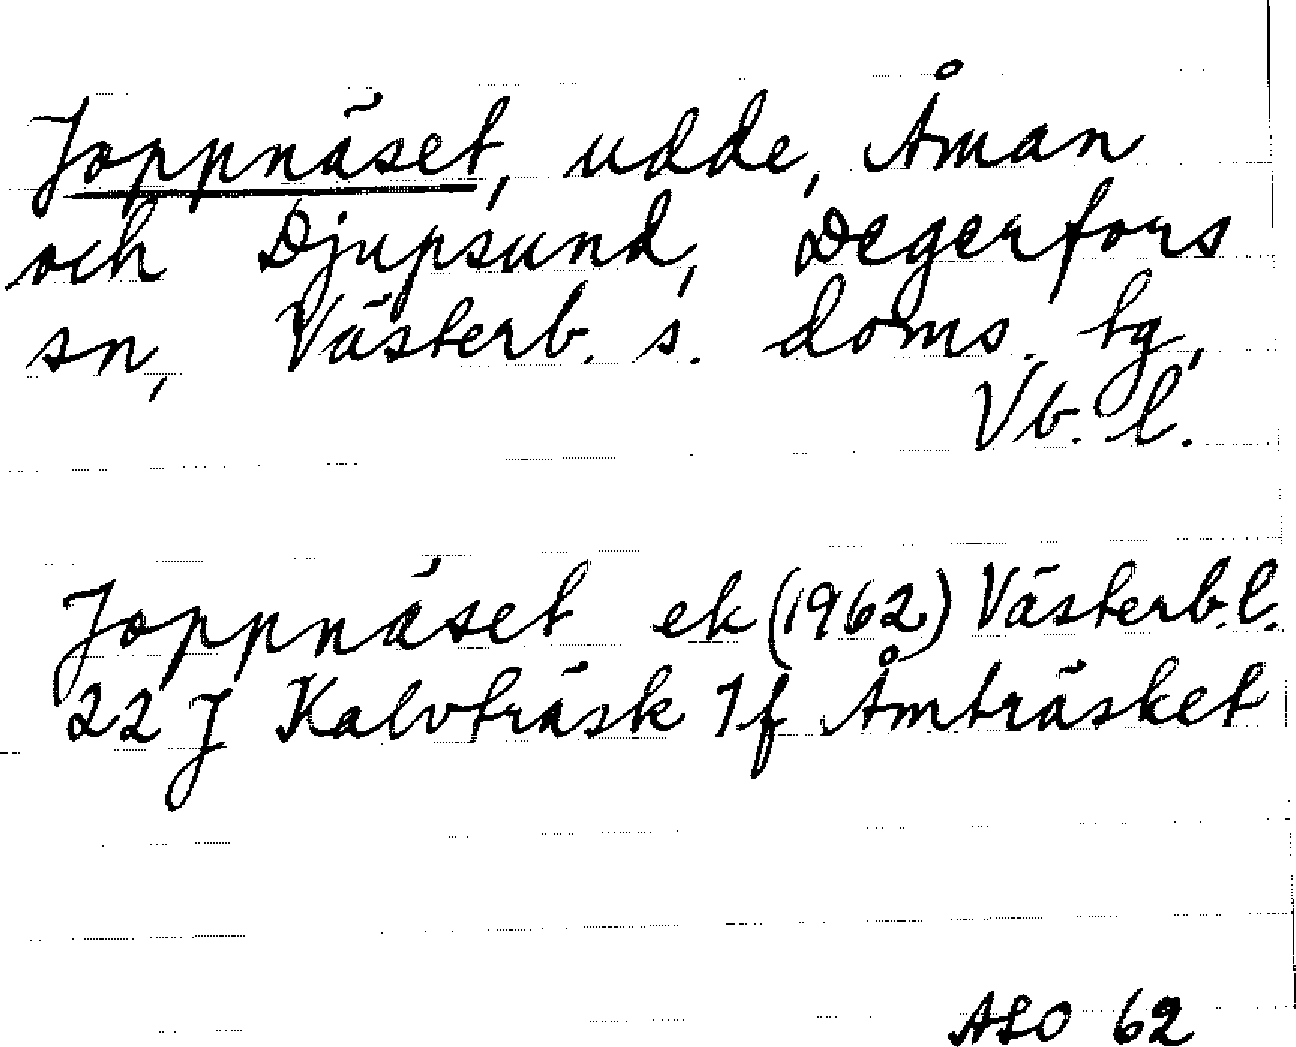 Joppnäset, udde, Åman
och Djupsund, Degerfors
sn, Västerb. s. doms. tg,
Vb. l.
Joppnäset ek (1962) Västerb.l.
22 J Kalvträsk 7f Åmträsket
ALO 62